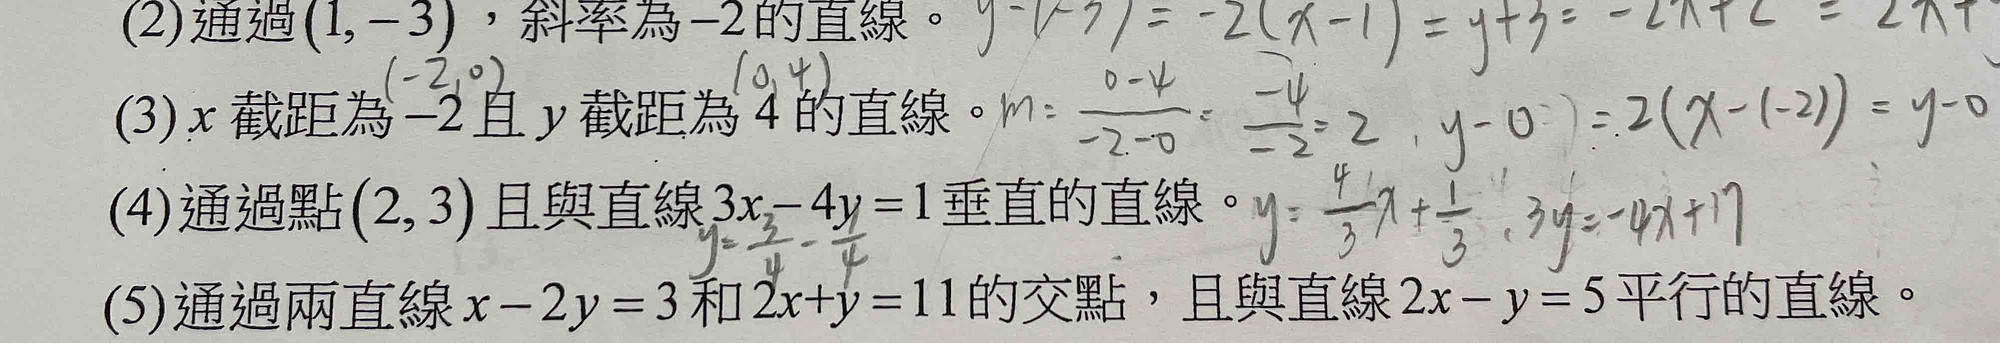 (2)通過(1,−3)，斜率為−2的直線。 y-(-3)=-2(x-1)=y+3=-2x+2=2x+y
(-2,0) (0,4)
(3) x 截距為−2且 y 截距為 4 的直線。 m=\frac{0-4}{-2-0}=\frac{-4}{-2}=2, y-0=2(x-(-2))=y-0
(4)通過點(2,3)且與直線3x−4y=1垂直的直線。 y=\frac{4}{3}x+\frac{1}{3}, 3y=-4x+17
y=\frac{3}{4}-\frac{1}{4}
(5)通過兩直線 x−2y=3和2x+y=11的交點，且與直線2x−y=5平行的直線。